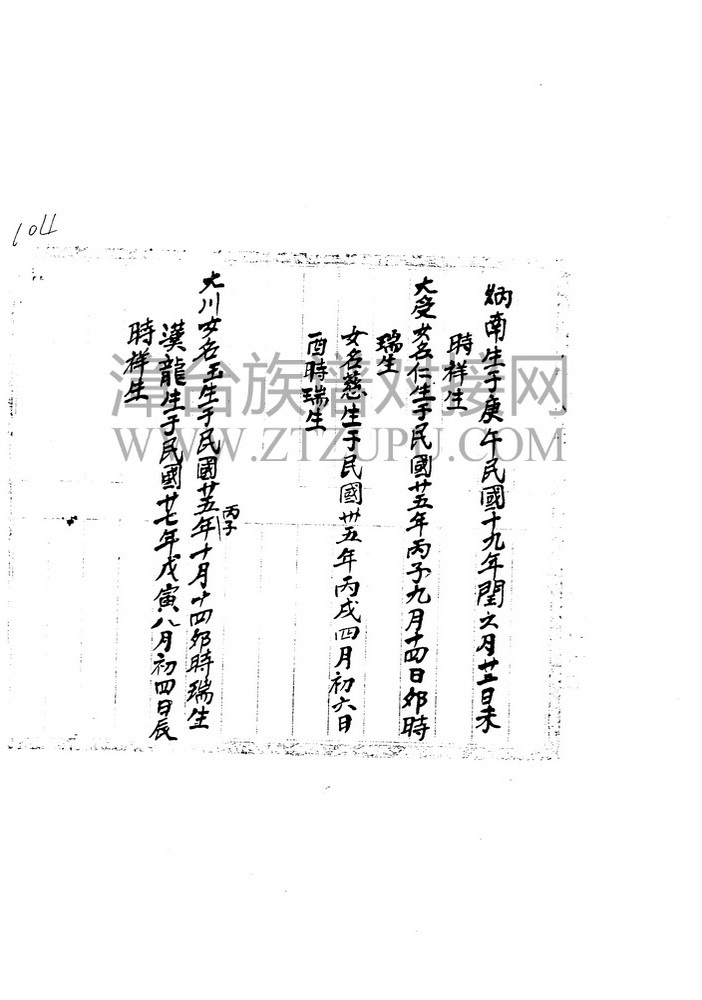 104
炳南生于庚午民國十九年閏六月廿三日未
時祥生
大受女名仁生于民國廿五年丙子九月十四日卯時
瑞生
女名慈生于民國卅五年丙戌四月初六日
酉時瑞生
大川女名玉生于民國廿五年丙子十月十四卯時瑞生
漢龍生于民國廿七年戊寅八月初四日辰
時祥生
漳台族谱对接网
WWW.ZTZUPU.COM